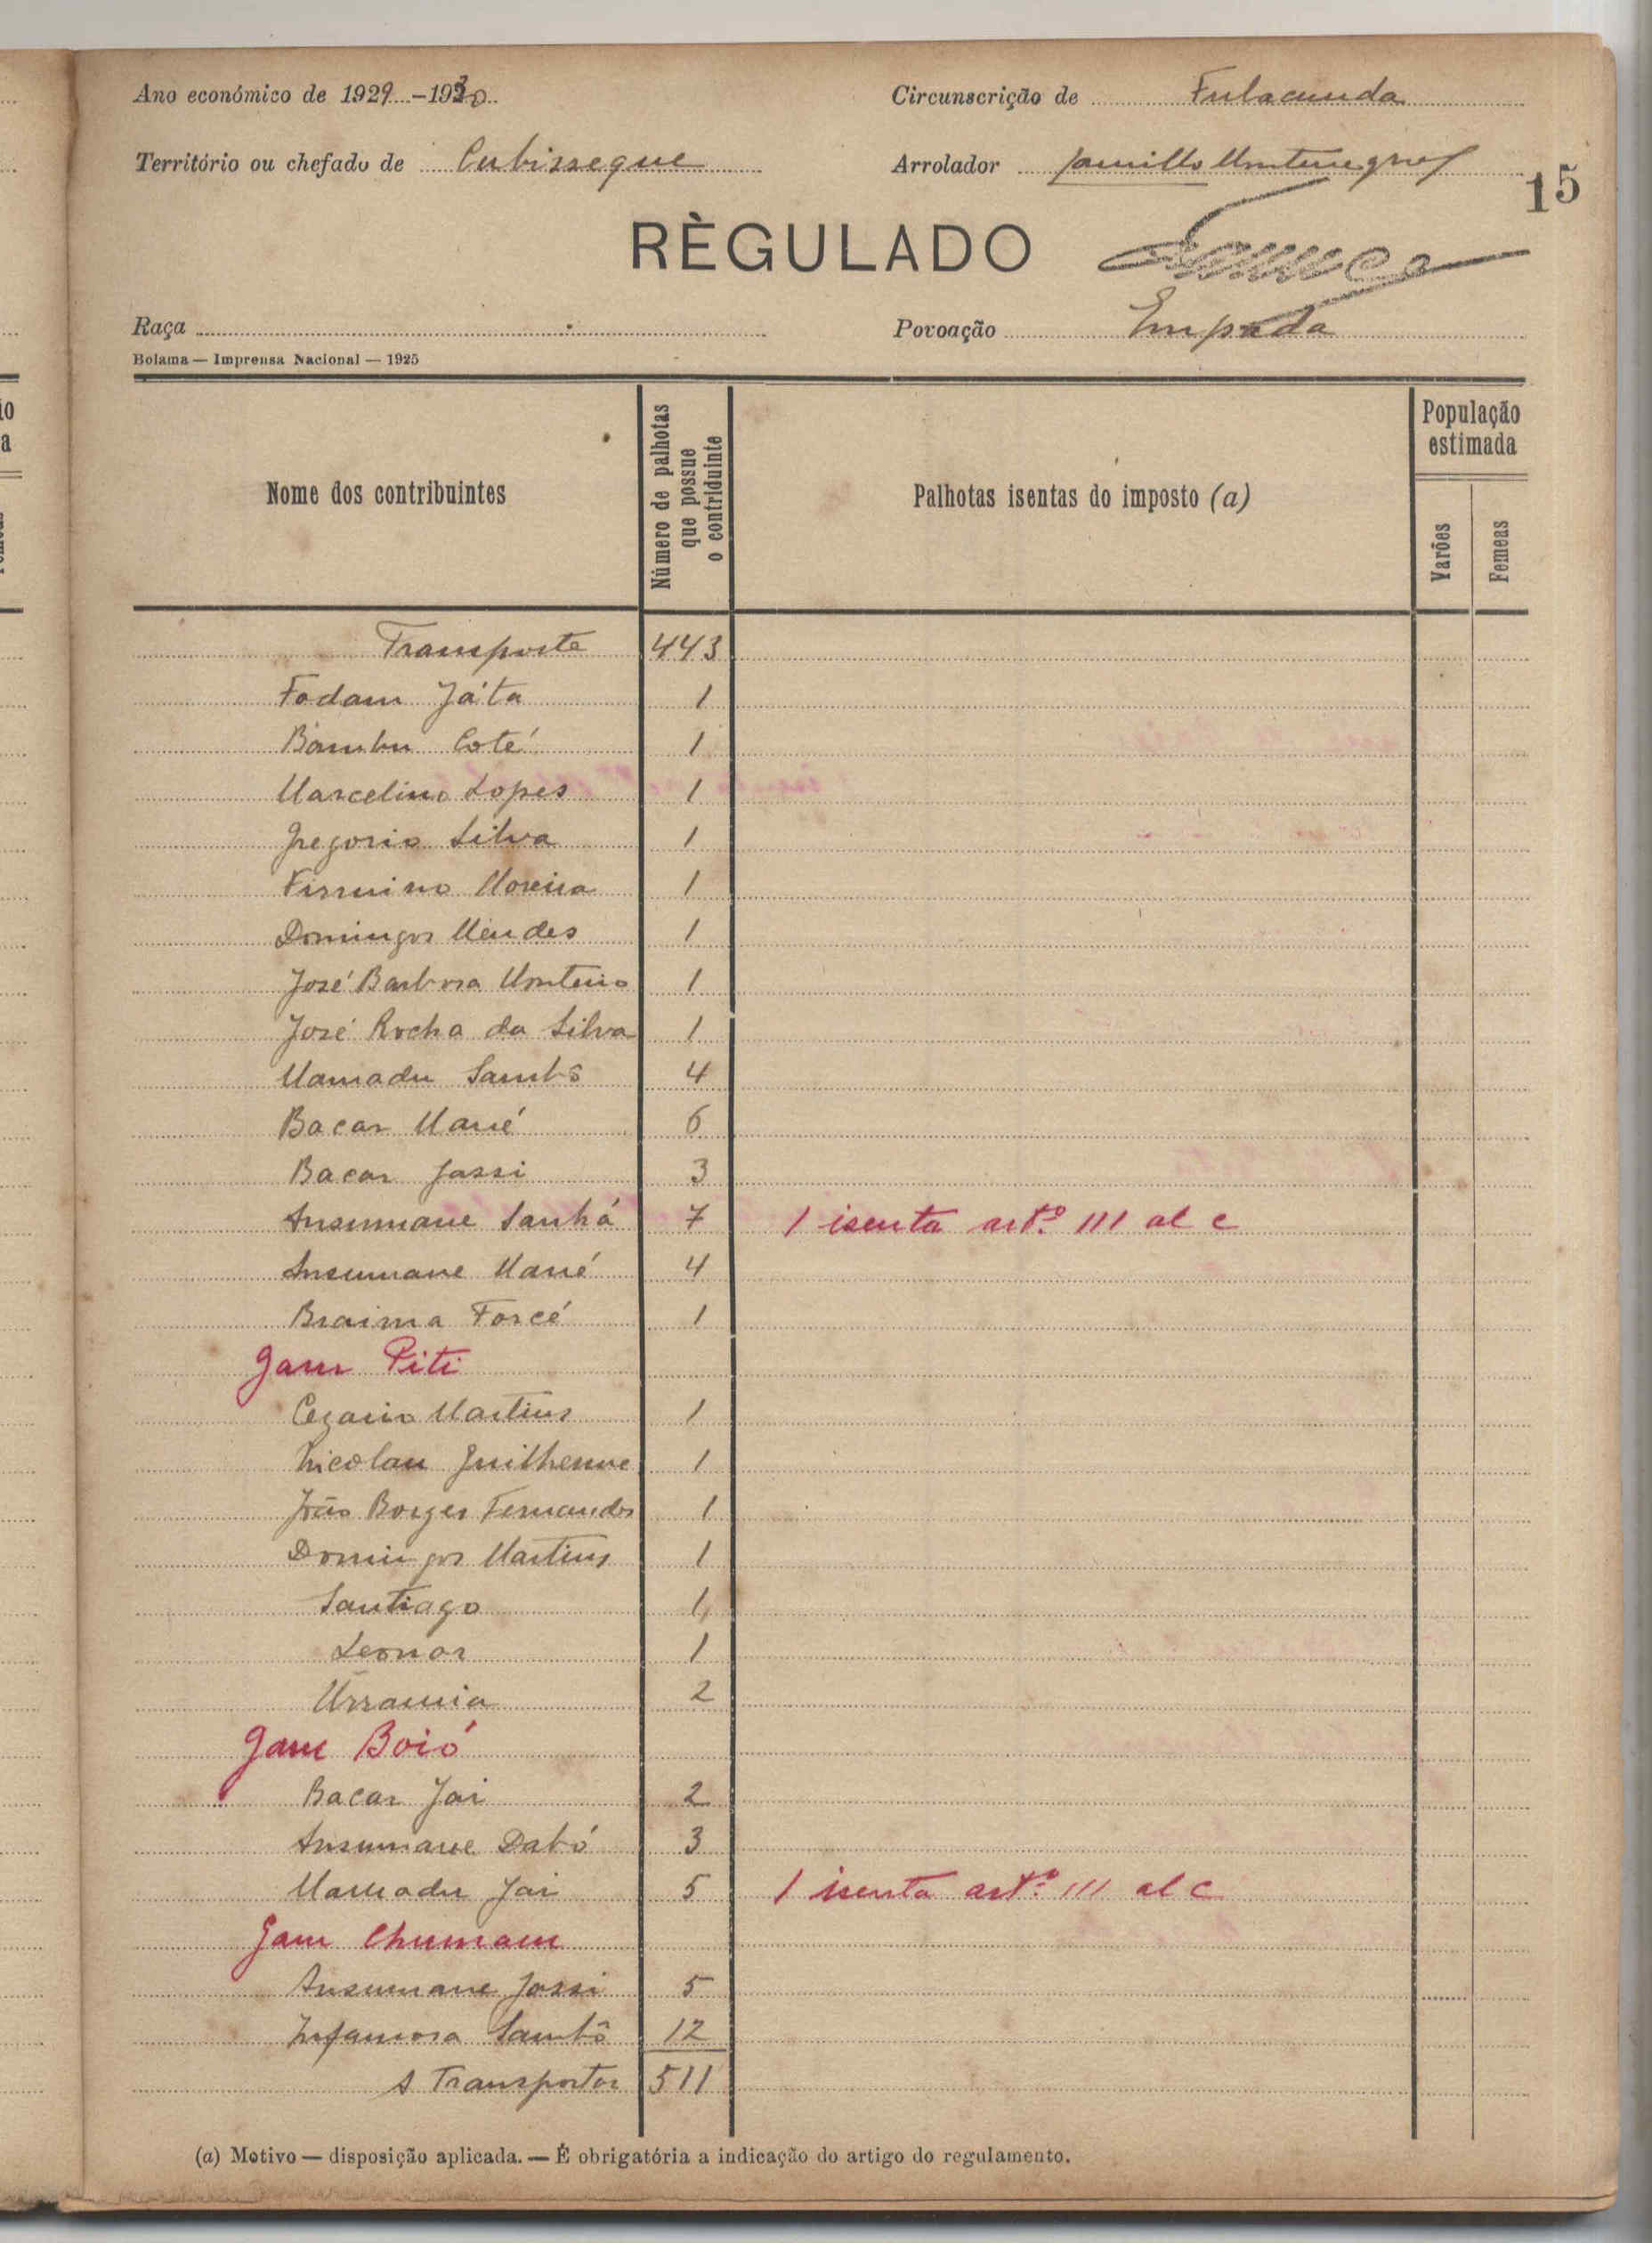 Ano económico de 1929 - 1930
Circunscrição de Fulacunda
Território ou chefado de Cubisseque
Arrolador Camillo Montenegro
15
RÈGULADO
Raça
Povoação Empada
Bolama — Imprensa Nacional — 1925
Nome dos contribuintes
Número de palhotas que possue o contriduinte
Palhotas isentas do imposto (a)
População estimada
Varões
Femeas
Transporte 443
Fodam Játa 1
Bambu Coté 1
Marcelino Lopes 1
Gregorio Silva 1
Firmino Moreira 1
Domingos Mendes 1
José Barbosa Monteiro 1
José Rocha da Silva 1
Mamadu Sambô 4
Bacar Mané 6
Bacar Jassi 3
Ansumane Sanhá 7 1 isenta artº. 111 al c
Ansumane Mané 4
Braima Forcé 1
Gam Piti
Cezario Martins 1
Nicolau Guilherme 1
João Borges Fernandes 1
Domingos Martins 1
Santiago 1
Leonor 1
Urrania 2
Gam Boió
Bacar Jai 2
Ansumane Dabó 3
Mamadu Jai 5 1 isenta artº. 111 al c
Gam Chumam
Ansumane Jassi 5
Infamosa Sambô 12
A Transportar 511
(a) Motivo — disposição aplicada. — É obrigatória a indicação do artigo do regulamento.